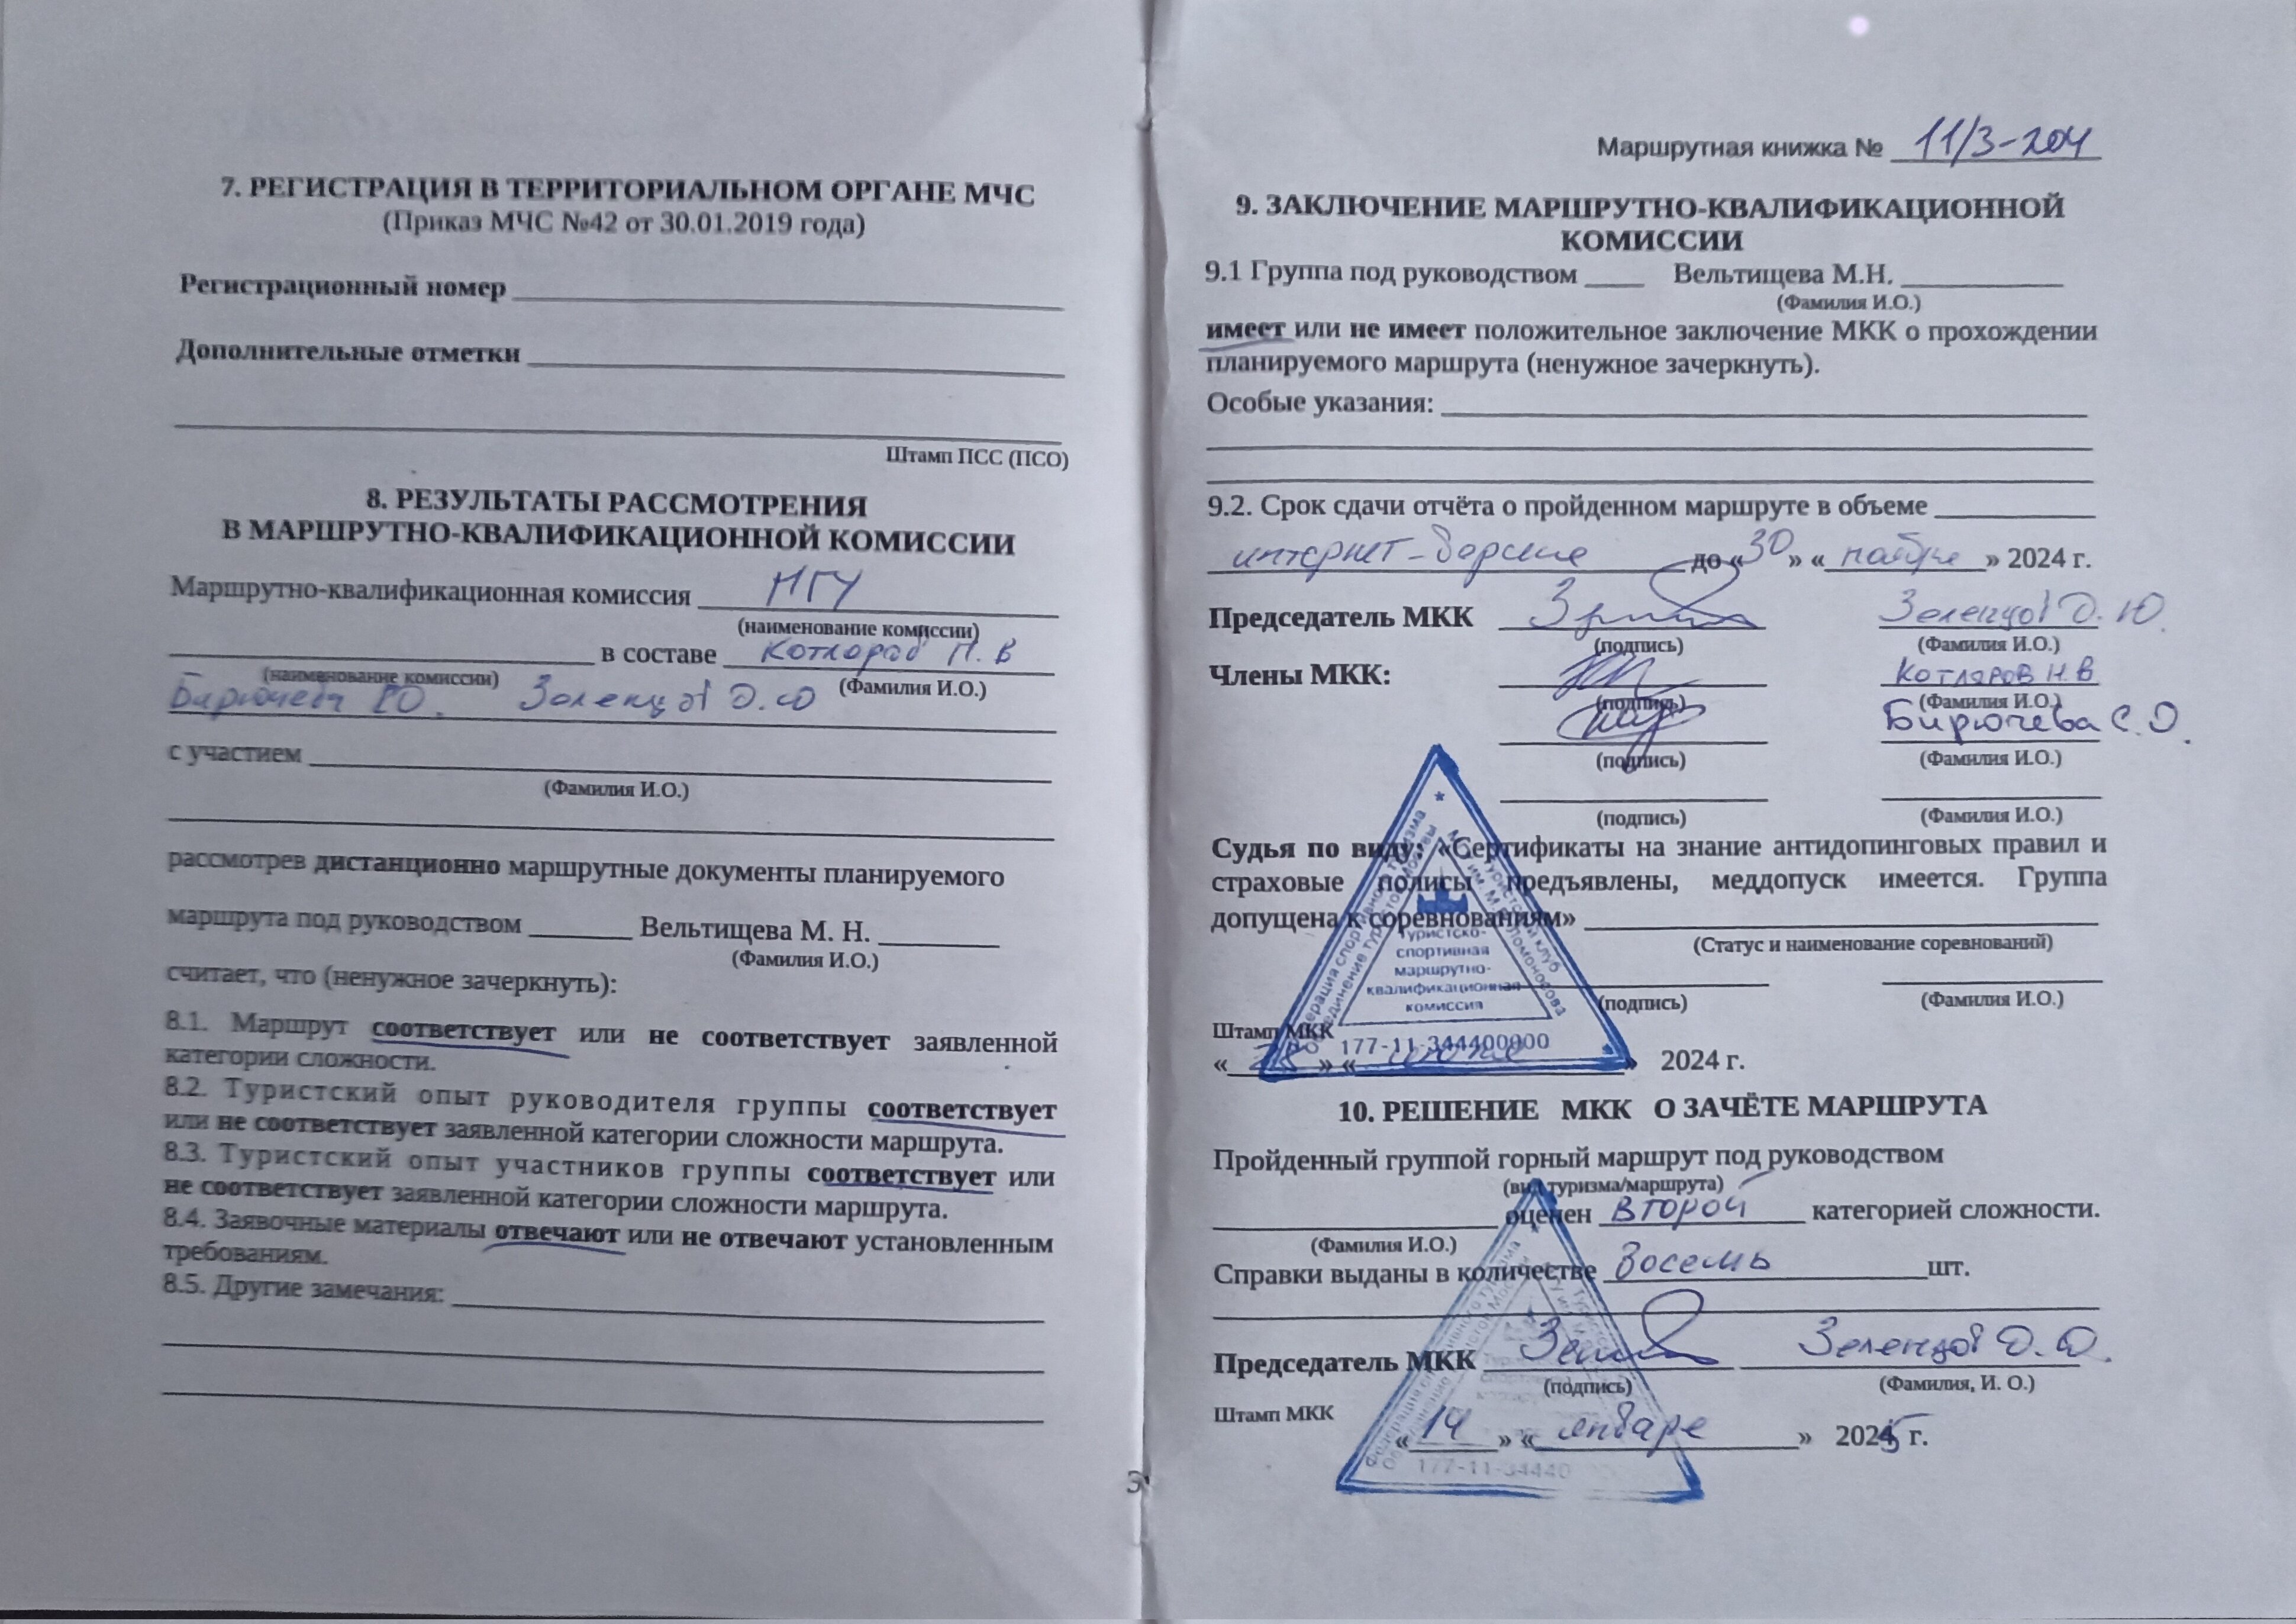 7. РЕГИСТРАЦИЯ В ТЕРРИТОРИАЛЬНОМ ОРГАНЕ МЧС
(Приказ МЧС №42 от 30.01.2019 года)
Регистрационный номер
Дополнительные отметки
Штамп ПСС (ПСО)
8. РЕЗУЛЬТАТЫ РАССМОТРЕНИЯ
В МАРШРУТНО-КВАЛИФИКАЦИОННОЙ КОМИССИИ
Маршрутно-квалификационная комиссия МГУ
(наименование комиссии)
в составе Котляров Н.В
(наименование комиссии) (Фамилия И.О.)
Бирючева Зеленцов Д.Ю
с участием
(Фамилия И.О.)
рассмотрев дистанционно маршрутные документы планируемого
маршрута под руководством Вельтищева М. Н.
(Фамилия И.О.)
считает, что (ненужное зачеркнуть):
8.1. Маршрут соответствует или не соответствует заявленной
категории сложности.
8.2. Туристский опыт руководителя группы соответствует
или не соответствует заявленной категории сложности маршрута.
8.3. Туристский опыт участников группы соответствует или
не соответствует заявленной категории сложности маршрута.
8.4. Заявочные материалы отвечают или не отвечают установленным
требованиям.
8.5. Другие замечания:
Маршрутная книжка № 11/3-204
9. ЗАКЛЮЧЕНИЕ МАРШРУТНО-КВАЛИФИКАЦИОННОЙ
КОМИССИИ
9.1 Группа под руководством Вельтищева М.Н.
(Фамилия И.О.)
имеет или не имеет положительное заключение МКК о прохождении
планируемого маршрута (ненужное зачеркнуть).
Особые указания:
9.2. Срок сдачи отчёта о пройденном маршруте в объеме
интернет-версие до «30» «ноября» 2024 г.
Председатель МКК Зеленцов Д.Ю.
(подпись) (Фамилия И.О.)
Члены МКК: Котляров Н.В
(подпись) (Фамилия И.О.)
Бирючева С.О.
(подпись) (Фамилия И.О.)
(подпись) (Фамилия И.О.)
Судья по виду: «Сертификаты на знание антидопинговых правил и
страховые полисы предъявлены, меддопуск имеется. Группа
допущена к соревнованиям»
(Статус и наименование соревнований)
(подпись) (Фамилия И.О.)
Федерация спортивного туризма
Объединение туристов Москвы
Туристский клуб
МГУ им. М.В. Ломоносова
Туристско-
спортивная
маршрутно-
квалификационная
комиссия
177-11-344400000
Штамп МКК
« » « » 2024 г.
10. РЕШЕНИЕ МКК О ЗАЧЁТЕ МАРШРУТА
Пройденный группой горный маршрут под руководством
(вид туризма/маршрута)
оценен второй категорией сложности.
(Фамилия И.О.)
Справки выданы в количестве восемь шт.
Председатель МКК Зеленцов Д.Ю.
(подпись) (Фамилия, И. О.)
Штамп МКК
«14» «января» 2025 г.
177-11-34440